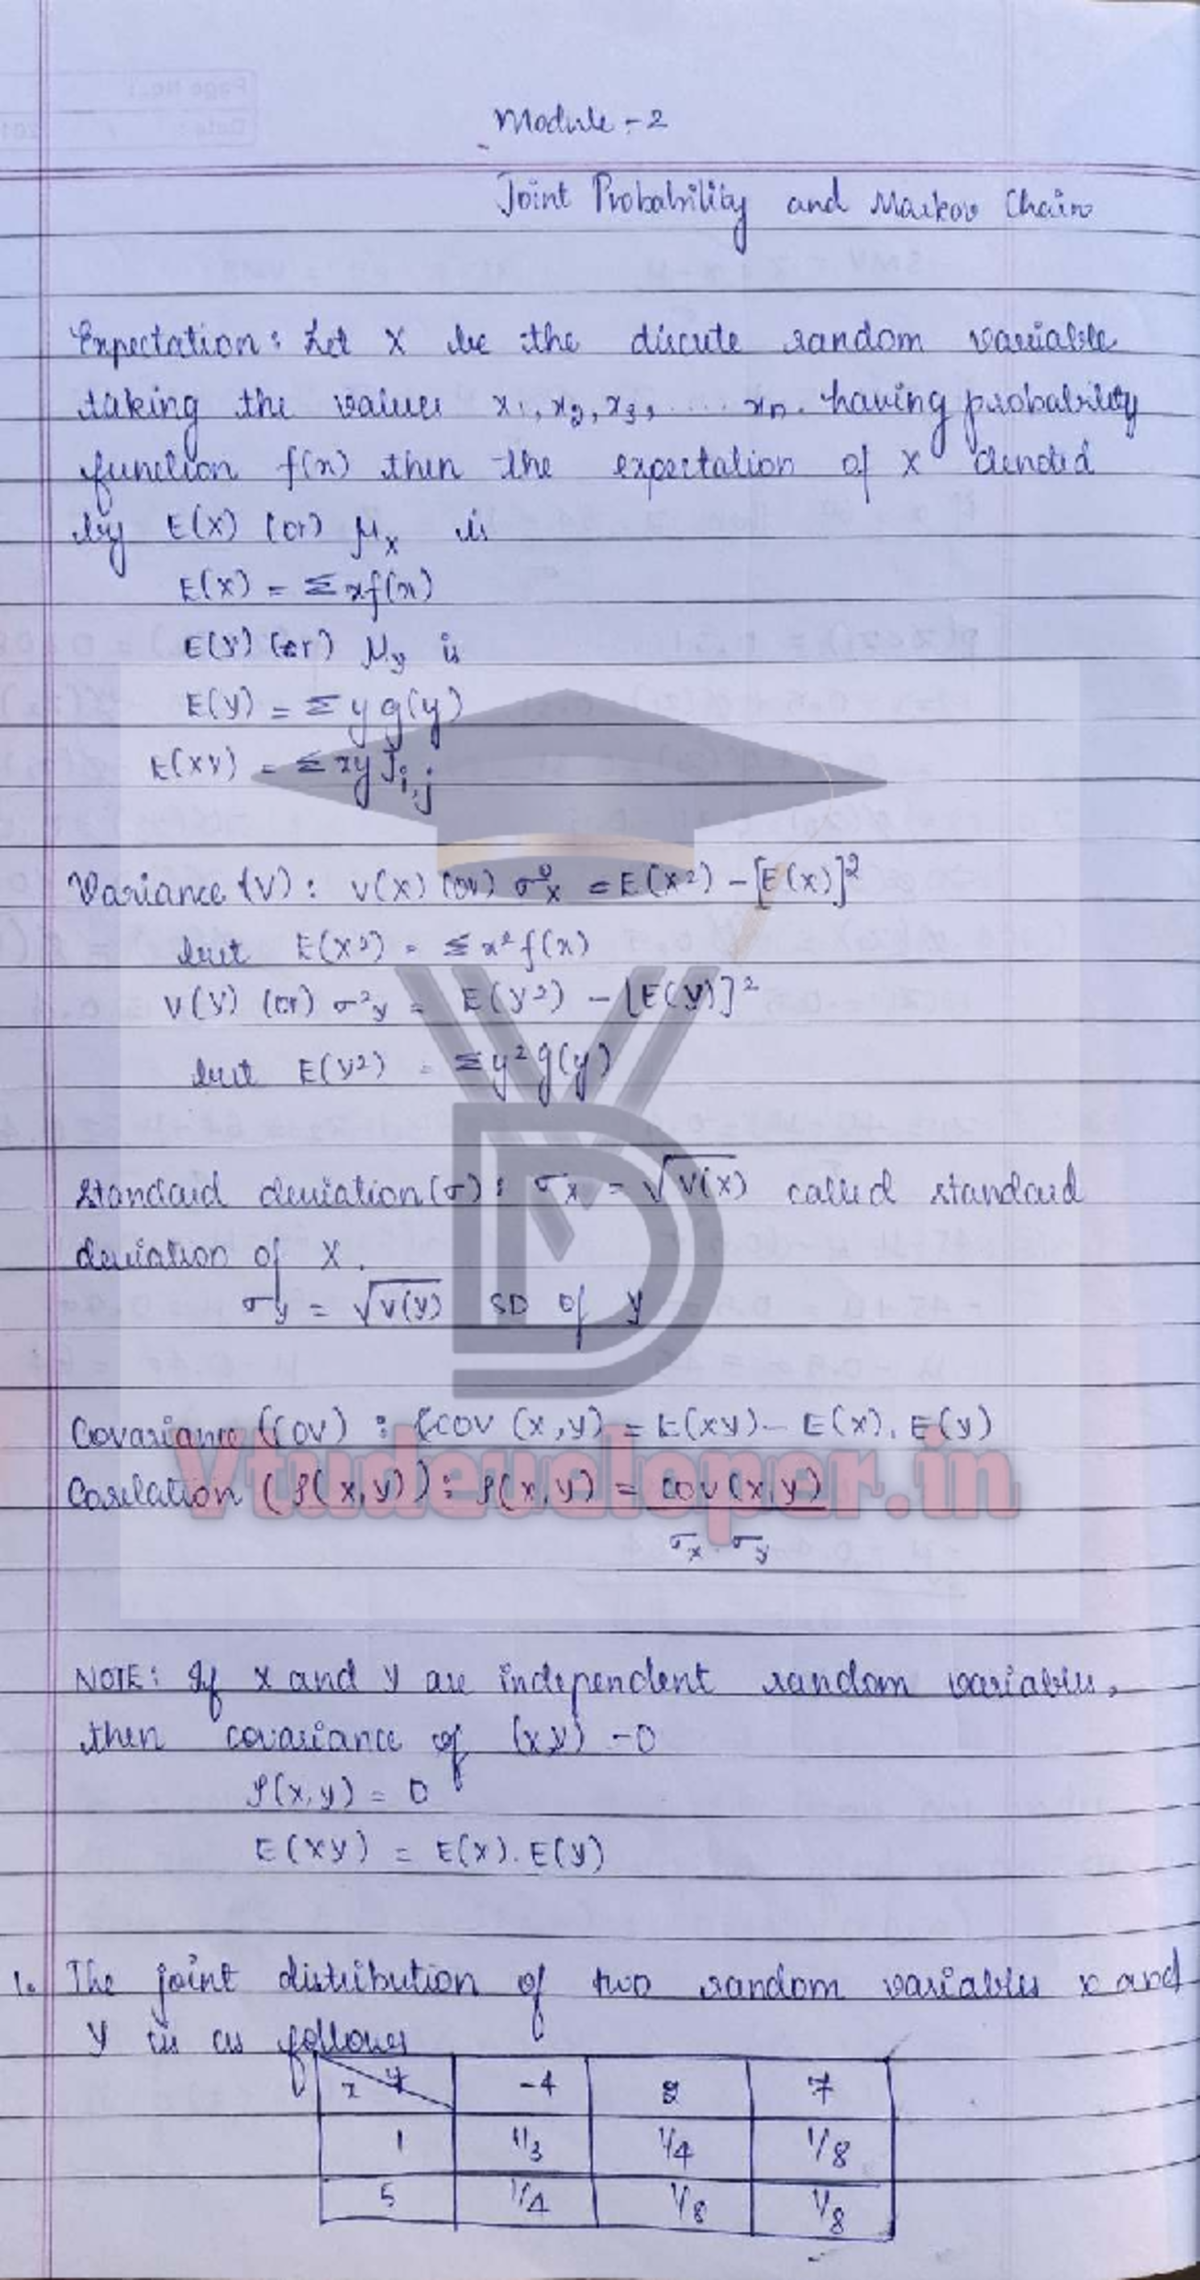 Module - 2
Joint Probability and Markov Chain
Expectation: Let X be the discute random variable
taking the values x1, x2, x3, .... xn. having probability
function f(x) then the expectation of X denoted
by E(X) (or) μx is
E(X) = Σxf(x)
E(Y) (or) μy is
E(Y) = Σ y g(y)
E(XY) = Σ xy Ji,j
Variance (V): V(X) (or) σ²x = E(X²) - [E(X)]²
but E(X²) = Σ x² f(x)
V(Y) (or) σ²y = E(Y²) - [E(Y)]²
but E(Y²) = Σy² g(y)
Standard deviation (σ): σx = √V(X) called standard
deviation of X.
σy = √V(Y) SD of Y
Covariance (COV) : COV (X,Y) = E(XY) - E(X). E(Y)
Vtudeveloper.in
Corelation (ρ(X,Y)): ρ(X,Y) = COV(X,Y)
σx . σy
NOTE: If X and Y are independent random variables,
then covariance of (XY) = 0
ρ(X,Y) = 0
E(XY) = E(X). E(Y)
1. The joint distribution of two random variables X and
Y is as follows
x y -4 2 7
1 1/3 1/4 1/8
5 1/4 1/8 1/8